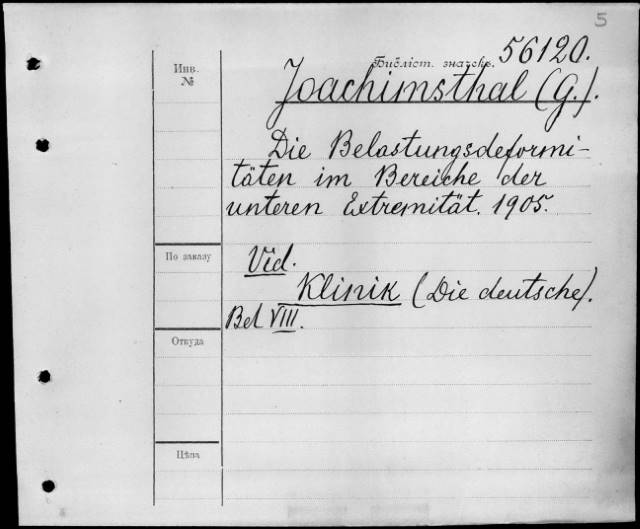 5
Инв.
№
Бібліот. значекъ. 56120.
Joachimsthal (G.).
Die Belastungsdeformi-
täten im Bereiche der
unteren Extremität. 1905.
По заказу
Vid.
Klinik (Die deutsche).
Bd VIII.
Откуда
Цѣна